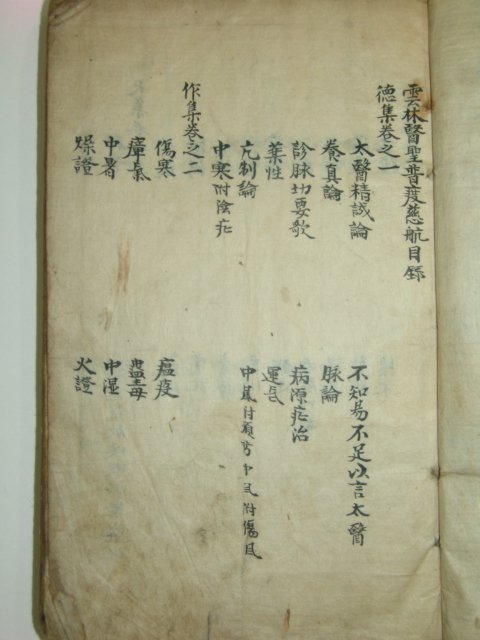 雲林醫聖普度慈航目錄
德集卷之一
太醫精誠論
不知易不足以言太醫
養真論
脉論
診脉切要歌
病源症治
藥性
運氣
亢制論
中風附預方中風附傷風
中寒附陰症
作集卷之二
傷寒
瘟疫
瘴氣
蠱毒
中暑
中湿
燥證
火證